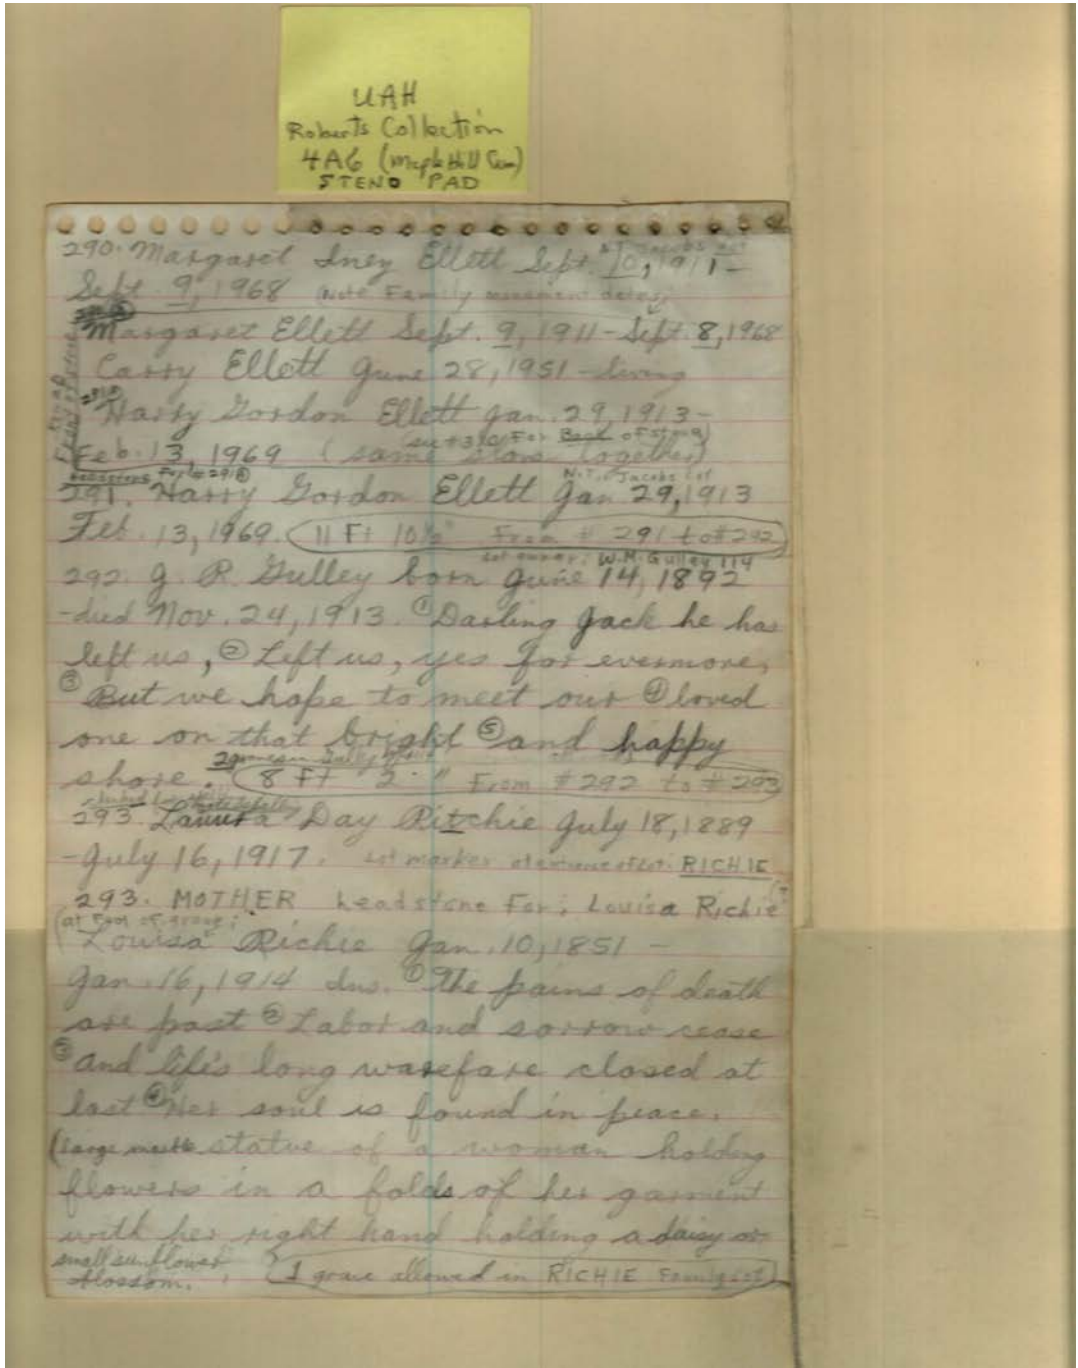 UAH
Roberts Collection
4A6 (Maple Hill Cem)
STENO PAD
290. Margaret Iney Ellett Sept. 10, 1911-
Sept. 9, 1968 (Note Family monument dates;
Margaret Ellett Sept. 9, 1911 - Sept. 8, 1968
Carry Ellett June 28, 1951 - living
Harry Gordon Ellett Jan. 29, 1913-
(see #310 For Back of stone)
Feb. 13, 1969 (same stone together)
Headstone For #291
291. Harry Gordon Ellett Jan 29, 1913
Feb. 13, 1969. (11 Ft 10½" From # 291 to #292)
Lot owner: W.M. Gulley 114
292. J. R. Gulley born June 14, 1892
-died Nov. 24, 1913. ① Darling Jack he has
left us, ② Left us, yes for evermore,
③ But we hope to meet our ④ loved
one on that bright ⑤ and happy
shore. (8 Ft 2 " From #292 to #293)
293. Laura Day Ritchie July 18, 1889
- July 16, 1917. Lot marker RICHIE
293. MOTHER headstone For; Louisa Richie
(at Foot of grave;
Louisa Richie Jan. 10, 1851 -
Jan. 16, 1914 Ins. ① The pains of death
are past ② Labor and sorrow cease
③ and life's long warefare closed at
last ④ Her soul is found in peace.
(large marble statue of a woman holding
flowers in a folds of her garment
with her right hand holding a daisy or
small sunflower
blossom. (1 grave allowed in RICHIE Family lot)